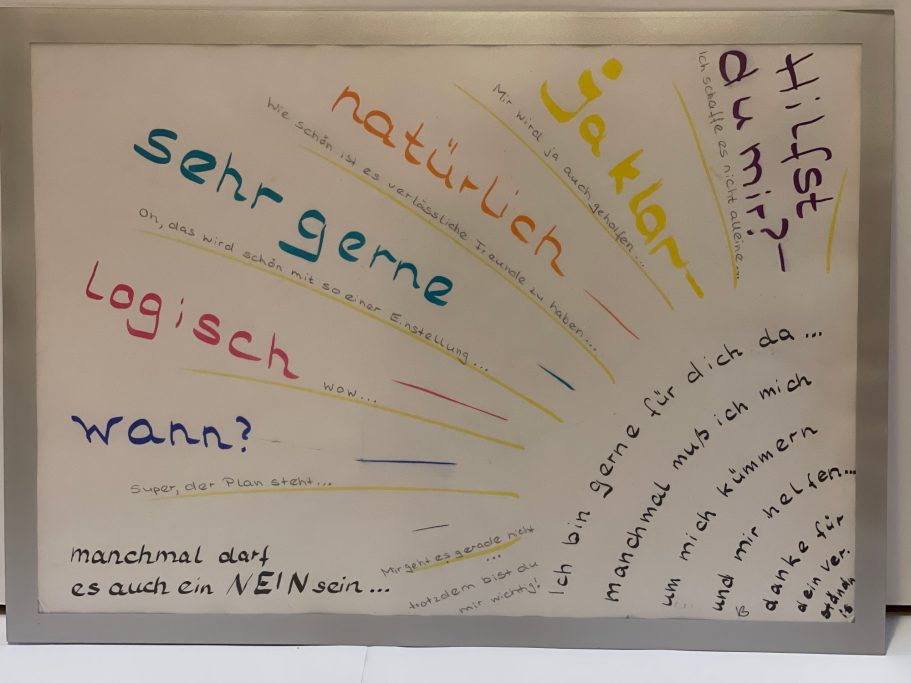 Hilfst
du mir?
Ich schaffe es nicht alleine...
ja klar
Mir wird ja auch geholfen...
natürlich
Wie schön ist es verlässliche Freunde zu haben...
sehr gerne
Oh, das wird schön mit so einer Einstellung...
logisch
wow...
wann?
Super, der Plan steht...
manchmal darf
es auch ein NEIN sein...
Mir geht es gerade nicht
...
trotzdem bist du
mir wichtig!
Ich bin gerne für dich da...
manchmal muß ich mich
um mich kümmern
und mir helfen...
danke für
dein Ver.
ständn
is